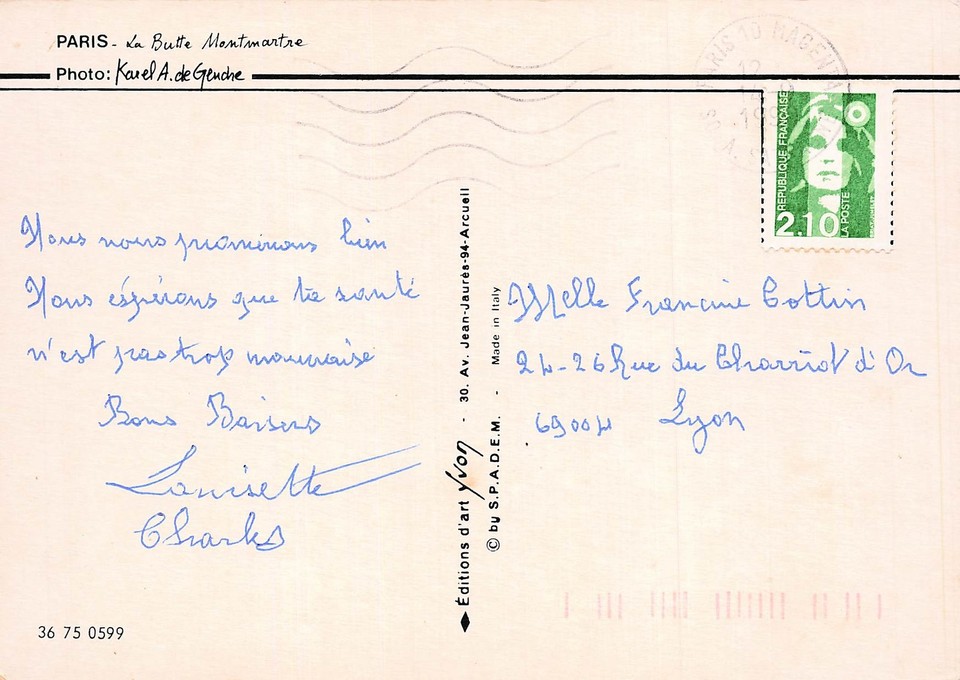 PARIS - La Butte Montmartre
Photo: Karel A. de Gendre
PARIS 10 MAGENTA
12
RÉPUBLIQUE FRANÇAISE
2.10
LA POSTE
Nous nous promenons bien
Nous éspérons que ta santé
n'est pas trop mauvaise
Bons Baisers
Louisette
Charles
36 75 0599
Éditions d'art yvon - 30. Av. Jean-Jaurès-94-Arcueil
© by S.P.A.D.E.M. - Made in Italy
Melle Francine Cottin
24-26 Rue du Charriot d'Or
69004 Lyon